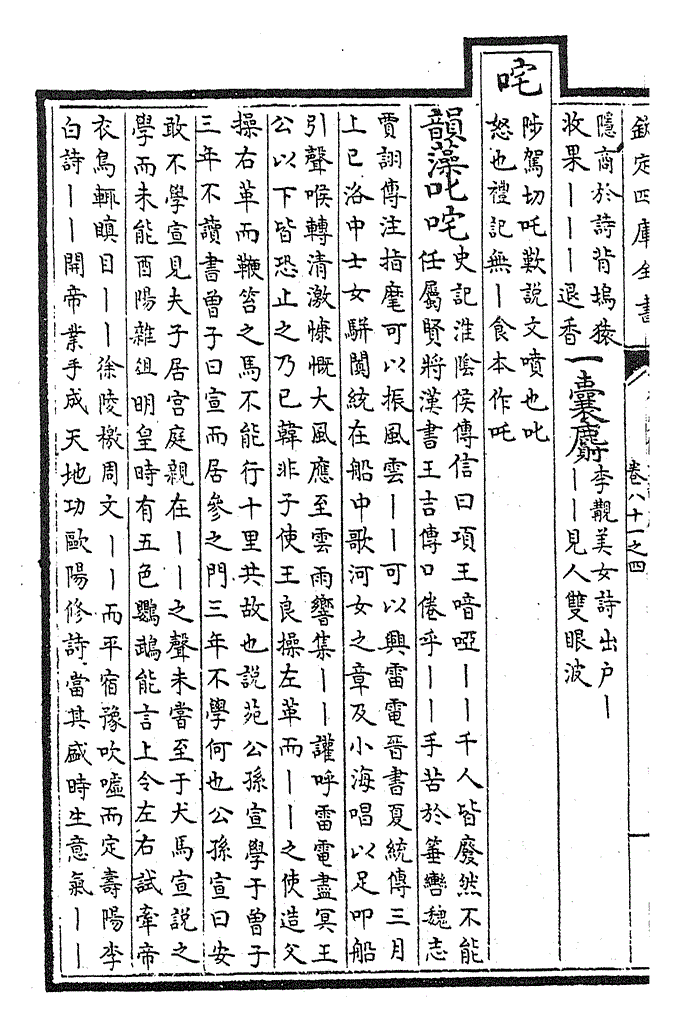 欽定四庫全書
卷八十一之四
隱商於詩背塢猿
收果丨丨丨退香
一囊麝
李覯美女詩出户丨
丨丨見人雙眼波
咤
陟駕切吒歎説文噴也叱
怒也禮記無丨食本作吒
韻藻叱咤
史記淮陰侯傳信曰項王喑啞丨丨千人皆廢然不能
任屬賢將漢書王吉傳口倦乎丨丨手苦於箠轡魏志
賈詡傳注指麾可以振風雲丨丨可以興雷電晉書夏統傳三月
上巳洛中士女駢闐統在船中歌河女之章及小海唱以足叩船
引聲喉轉清激慷慨大風應至雲雨響集丨丨讙呼雷電晝冥王
公以下皆恐止之乃已韓非子使王良操左革而丨丨之使造父
操右革而鞭笞之馬不能行十里共故也説苑公孫宣學于曾子
三年不讀書曾子曰宣而居參之門三年不學何也公孫宣曰安
敢不學宣見夫子居宫庭親在丨丨之聲未嘗至于犬馬宣説之
學而未能酉陽雜俎明皇時有五色鸚鵡能言上令左右試牽帝
衣鳥輒瞋目丨丨徐陵檄周文丨丨而平宿豫吹噓而定壽陽李
白詩丨丨開帝業手成天地功歐陽修詩當其盛時生意氣丨丨